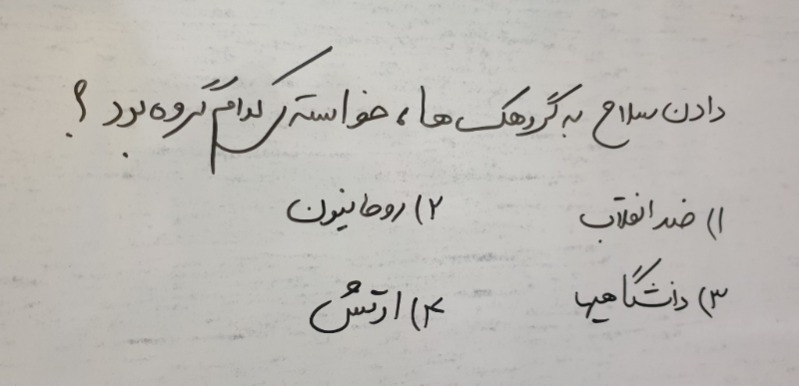 دادن سلاح به گروهک ها، خواسته‌ی کدام گروه بود؟
۱) ضد انقلاب ۲) روحانیون
۳) دانشگاهیها ۴) ارتش